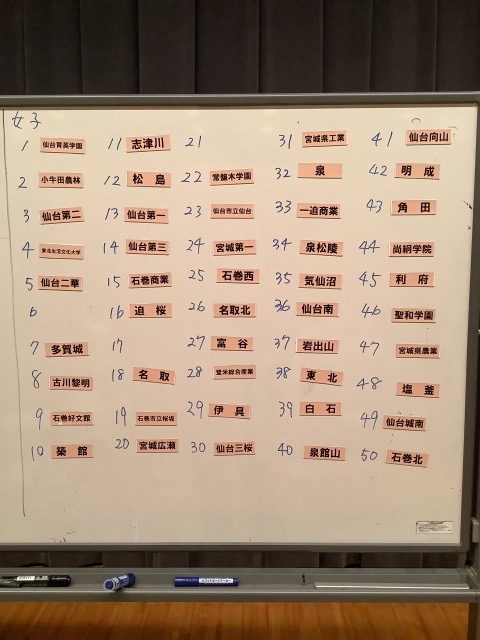 女子
1 仙台育英学園
2 小牛田農林
3 仙台第二
4 東北生活文化大学
5 仙台二華
6
7 多賀城
8 古川黎明
9 石巻好文館
10 築館
11 志津川
12 松島
13 仙台第一
14 仙台第三
15 石巻商業
16 迫桜
17
18 名取
19 石巻市立桜坂
20 宮城広瀬
21
22 常盤木学園
23 仙台市立仙台
24 宮城第一
25 石巻西
26 名取北
27 富谷
28 登米総合産業
29 伊具
30 仙台三桜
31 宮城県工業
32 泉
33 一迫商業
34 泉松陵
35 気仙沼
36 仙台南
37 岩出山
38 東北
39 白石
40 泉館山
41 仙台向山
42 明成
43 角田
44 尚絅学院
45 利府
46 聖和学園
47 宮城県農業
48 塩釜
49 仙台城南
50 石巻北